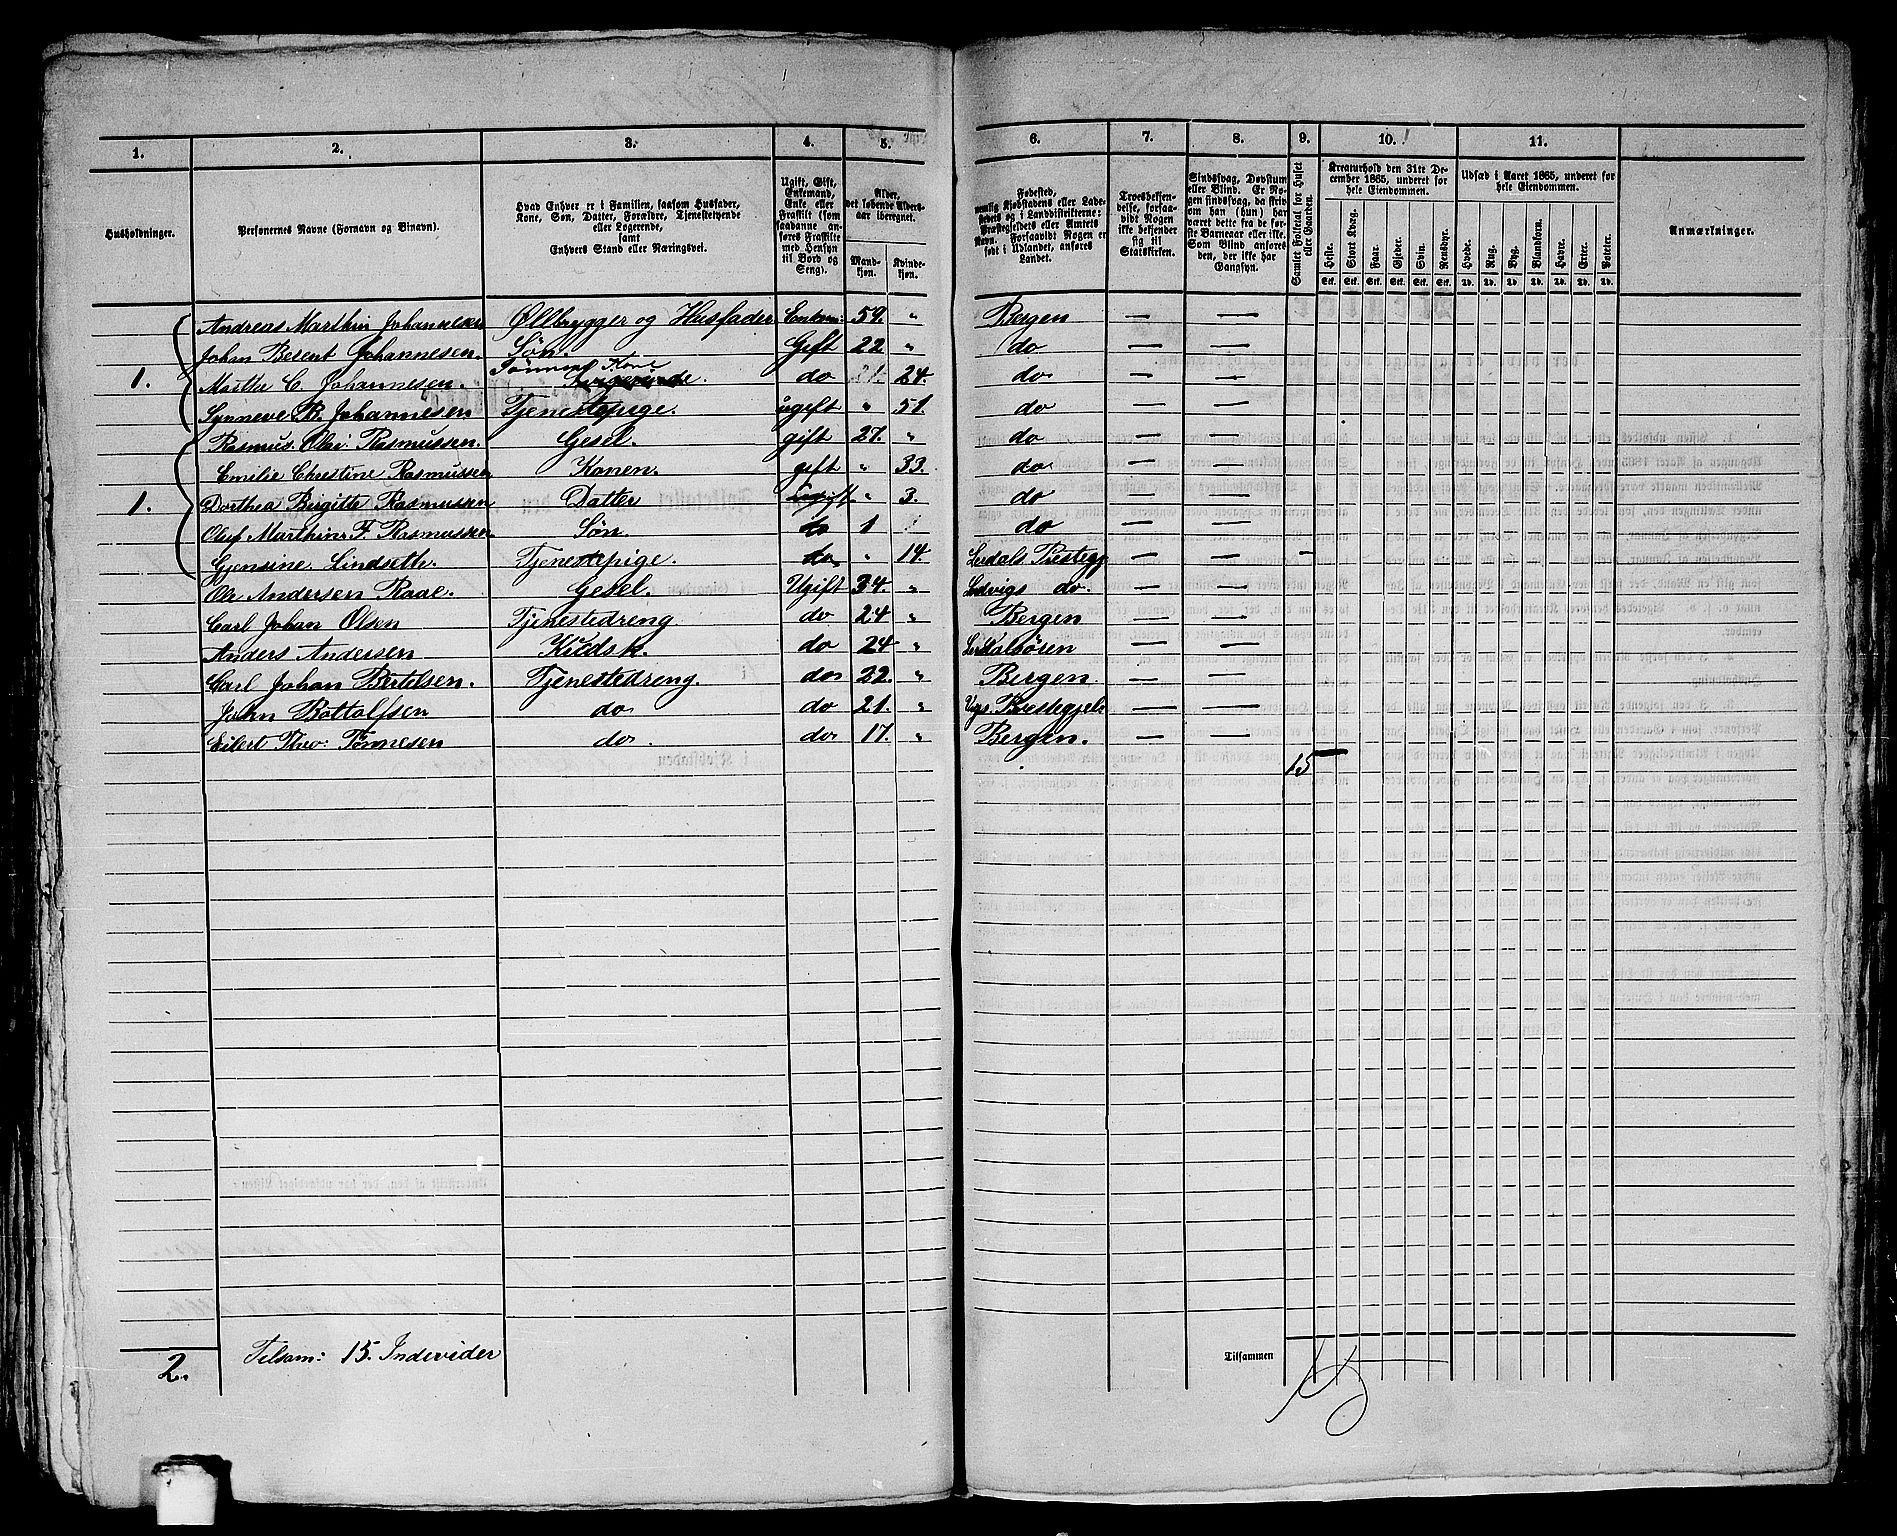 1. 2. 3. 4. 5. 6. 7. 8. 9. 10. 11.
Husholdninger.
Personernes Navne (Fornavn og Binavn).
Hvad Enhver er i Familien, saasom Husfader,
Kone, Søn, Datter, Forældre, Tjenestetyende
eller Logerende,
samt
Enhvers Stand eller Næringsvei.
Ugift, Gift,
Enkemand,
Enke eller
Fraskilt (som
saadanne an-
føres Fraskilte
med Hensyn
til Bord og
Seng).
Alder,
det løbende Alders-
aar iberegnet.
Mand-
kjøn.
Kvinde-
kjøn.
Fødested,
nemlig Kjøbstadens eller Lade-
stedets og i Landdistrikterne:
Præstegjeldets eller Amtets
Navn. Forsaavidt Nogen er
født i Udlandet, anføres
Landet.
Troesbekjen-
delse, forsaa-
vidt Nogen
ikke bekjender
sig til
Statskirken.
Sindssvag, Døvstum
eller Blind. Er No-
gen sindssvag, da skriv
om han (hun) har
været dette fra de før-
ste Barneaar eller ikke.
Som Blind anføres
den, der ikke har
Gangsyn.
Samlet Folketal for Huset
eller Gaarden.
Kreaturhold den 31te De-
cember 1865, underet for
hele Eiendommen.
Heste. Stort Kvæg. Faar. Gjeder. Svin. Rensdyr.
Stk. Stk. Stk. Stk. Stk. Stk.
Udsæd i Aaret 1865, underet for
hele Eiendommen.
Hvede. Rug. Byg. Blandkorn. Havre. Erter. Poteter.
Td. Td. Td. Td. Td. Td. Td.
Anmærkninger.
Andreas Marthin Johannesen Øllbrygger og Husfader Enkem: 59. " Bergen — —
Johan Besent Johannesen. Søn. Gift 22 " do — —
Sønnens Kone
1. Marthe C. Johannesen. do 24. do — —
Synneve B. Johannesen Tjenestepige. ugift " 51. do — —
Rasmus Olai Rasmussen. Gesel. gift 27. " do — —
Emilie Chrestine Rasmussen Konen. gift " 33. do — —
1. Dorthea Birgitte Rasmussen Datter ugift " 3. do — —
Oluf Marthin F. Rasmussen Søn. do 1 do — —
Gjensine Lindseth. Tjenestepige. do " 14. Lerdals Prestegj — — —
Ole Andersen Raae. Gesel. Ugift 34. " Ledvigs do. — —
Carl Johan Olsen Tjenestedreng do 24 " Bergen — —
Anders Andersen do 24 " — —
Carl Johan Bertelsen. Tjenestedreng. do 22. " Bergen. — —
John Bottolfsen do do 21. " Prestegjeld — —
Eilert Theo: Tønnesen do. do 17. " Bergen. — —
15
2. Telsam: 15. Indevider
Tilsammen
15